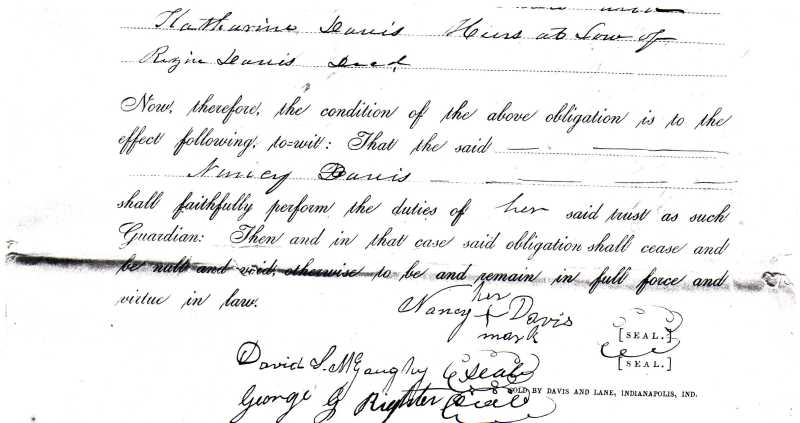 Katharine Davis Heirs at Law of
Rezin Davis Decd.
Now, therefore, the condition of the above obligation is to the
effect following, to=wit: That the said
Nancy Davis
shall faithfully perform the duties of her said trust as such
Guardian: Then and in that case said obligation shall cease and
be null and void, otherwise to be and remain in full force and
virtue in law.
Nancy her Davis
mark
[SEAL.]
[SEAL.]
David S. McGaughy Seal
George G Righter Seal
SOLD BY DAVIS AND LANE, INDIANAPOLIS, IND.